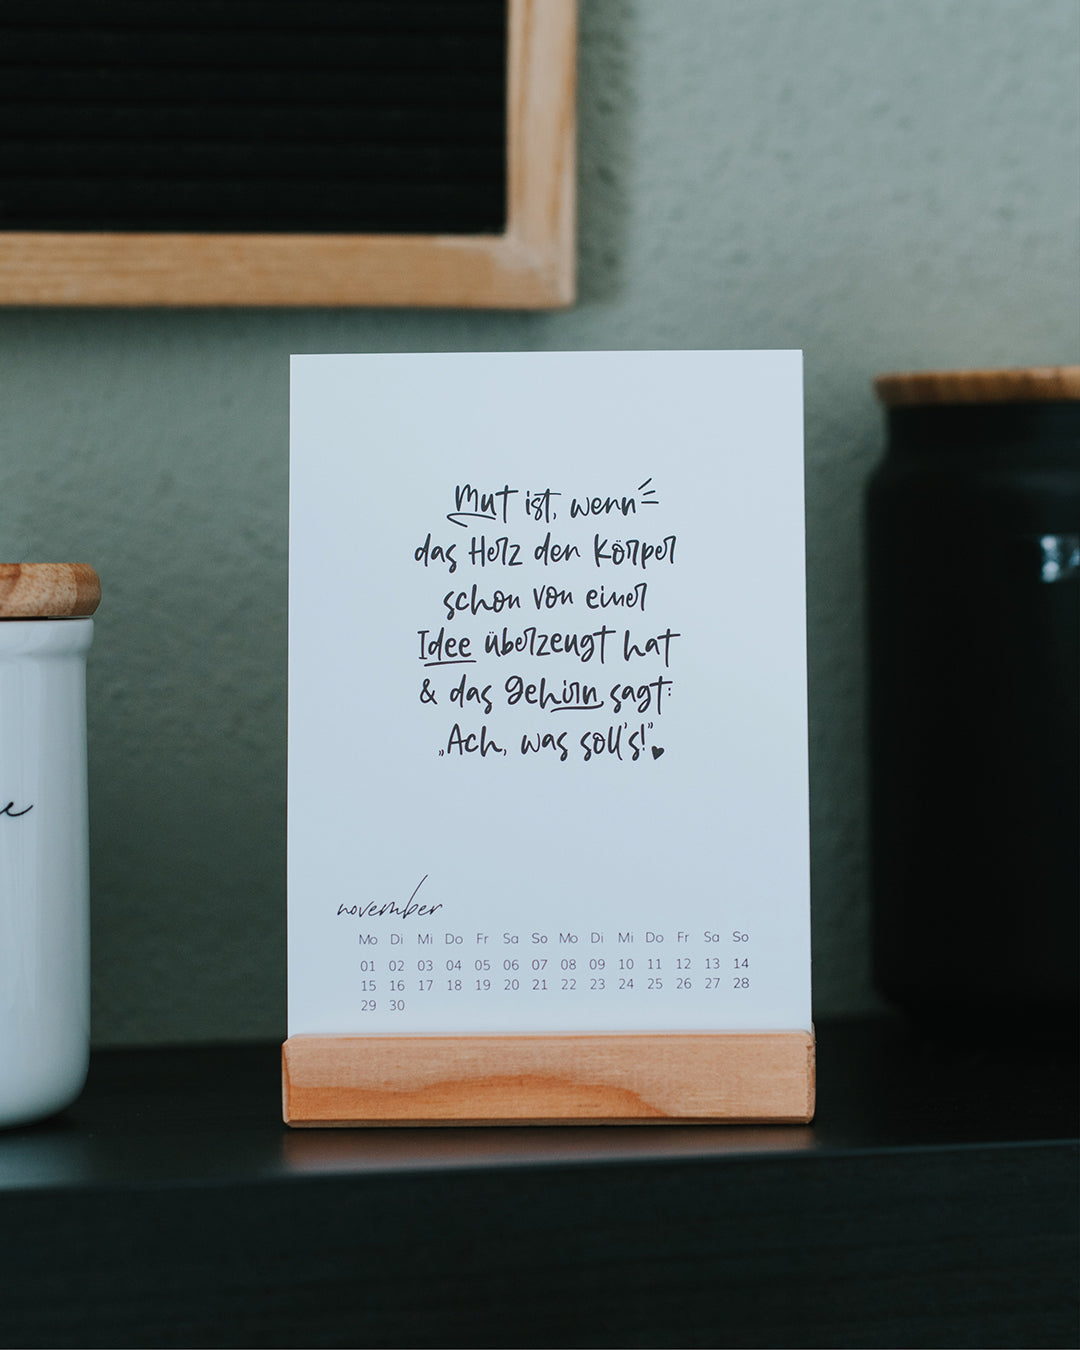 Mut ist, wenn
das Herz den Körper
schon von einer
Idee überzeugt hat
& das Gehirn sagt:
„Ach, was soll's!”
november
Mo Di Mi Do Fr Sa So Mo Di Mi Do Fr Sa So
01 02 03 04 05 06 07 08 09 10 11 12 13 14
15 16 17 18 19 20 21 22 23 24 25 26 27 28
29 30